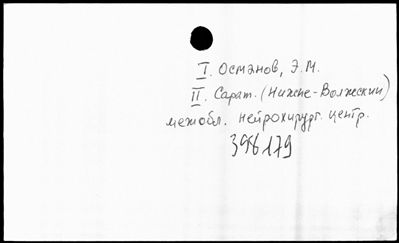 I. Османов, Э.М.
II. Сарат. (Нижне-Волжский)
межобл. нейрохирург. центр.
398179